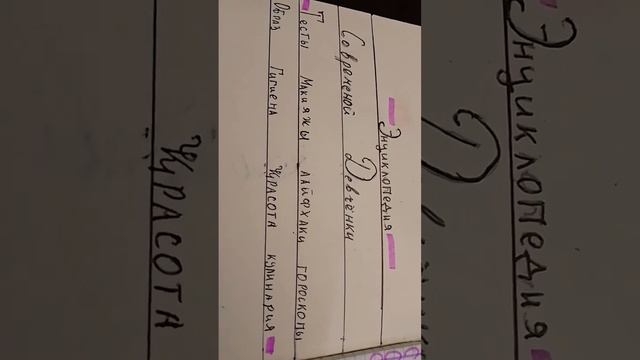 Энциклопедия
Современой Девчёнки
Тесты Макияжы лайфхаки гороскопы
Образ Гигиена Красота кулинария